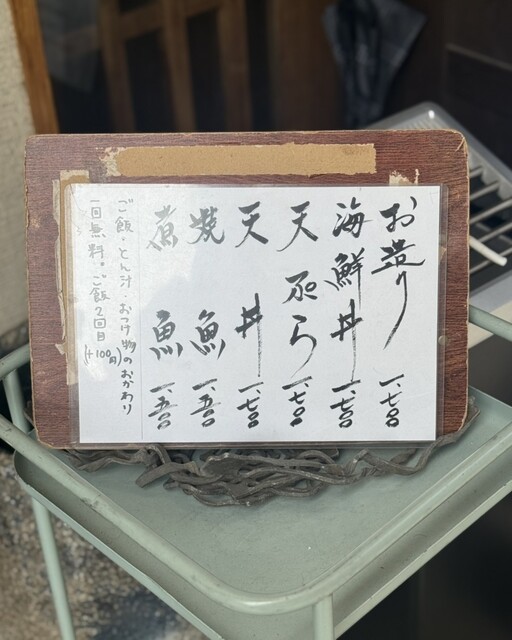 お造り 一、七〇〇
海鮮丼 一、七〇〇
天ぷら 一、七〇〇
天丼 一、七〇〇
焼魚 一、五〇〇
煮魚 一、五〇〇
ご飯・とん汁・おつけ物のおかわり
一回無料。ご飯2回目
(+100円)